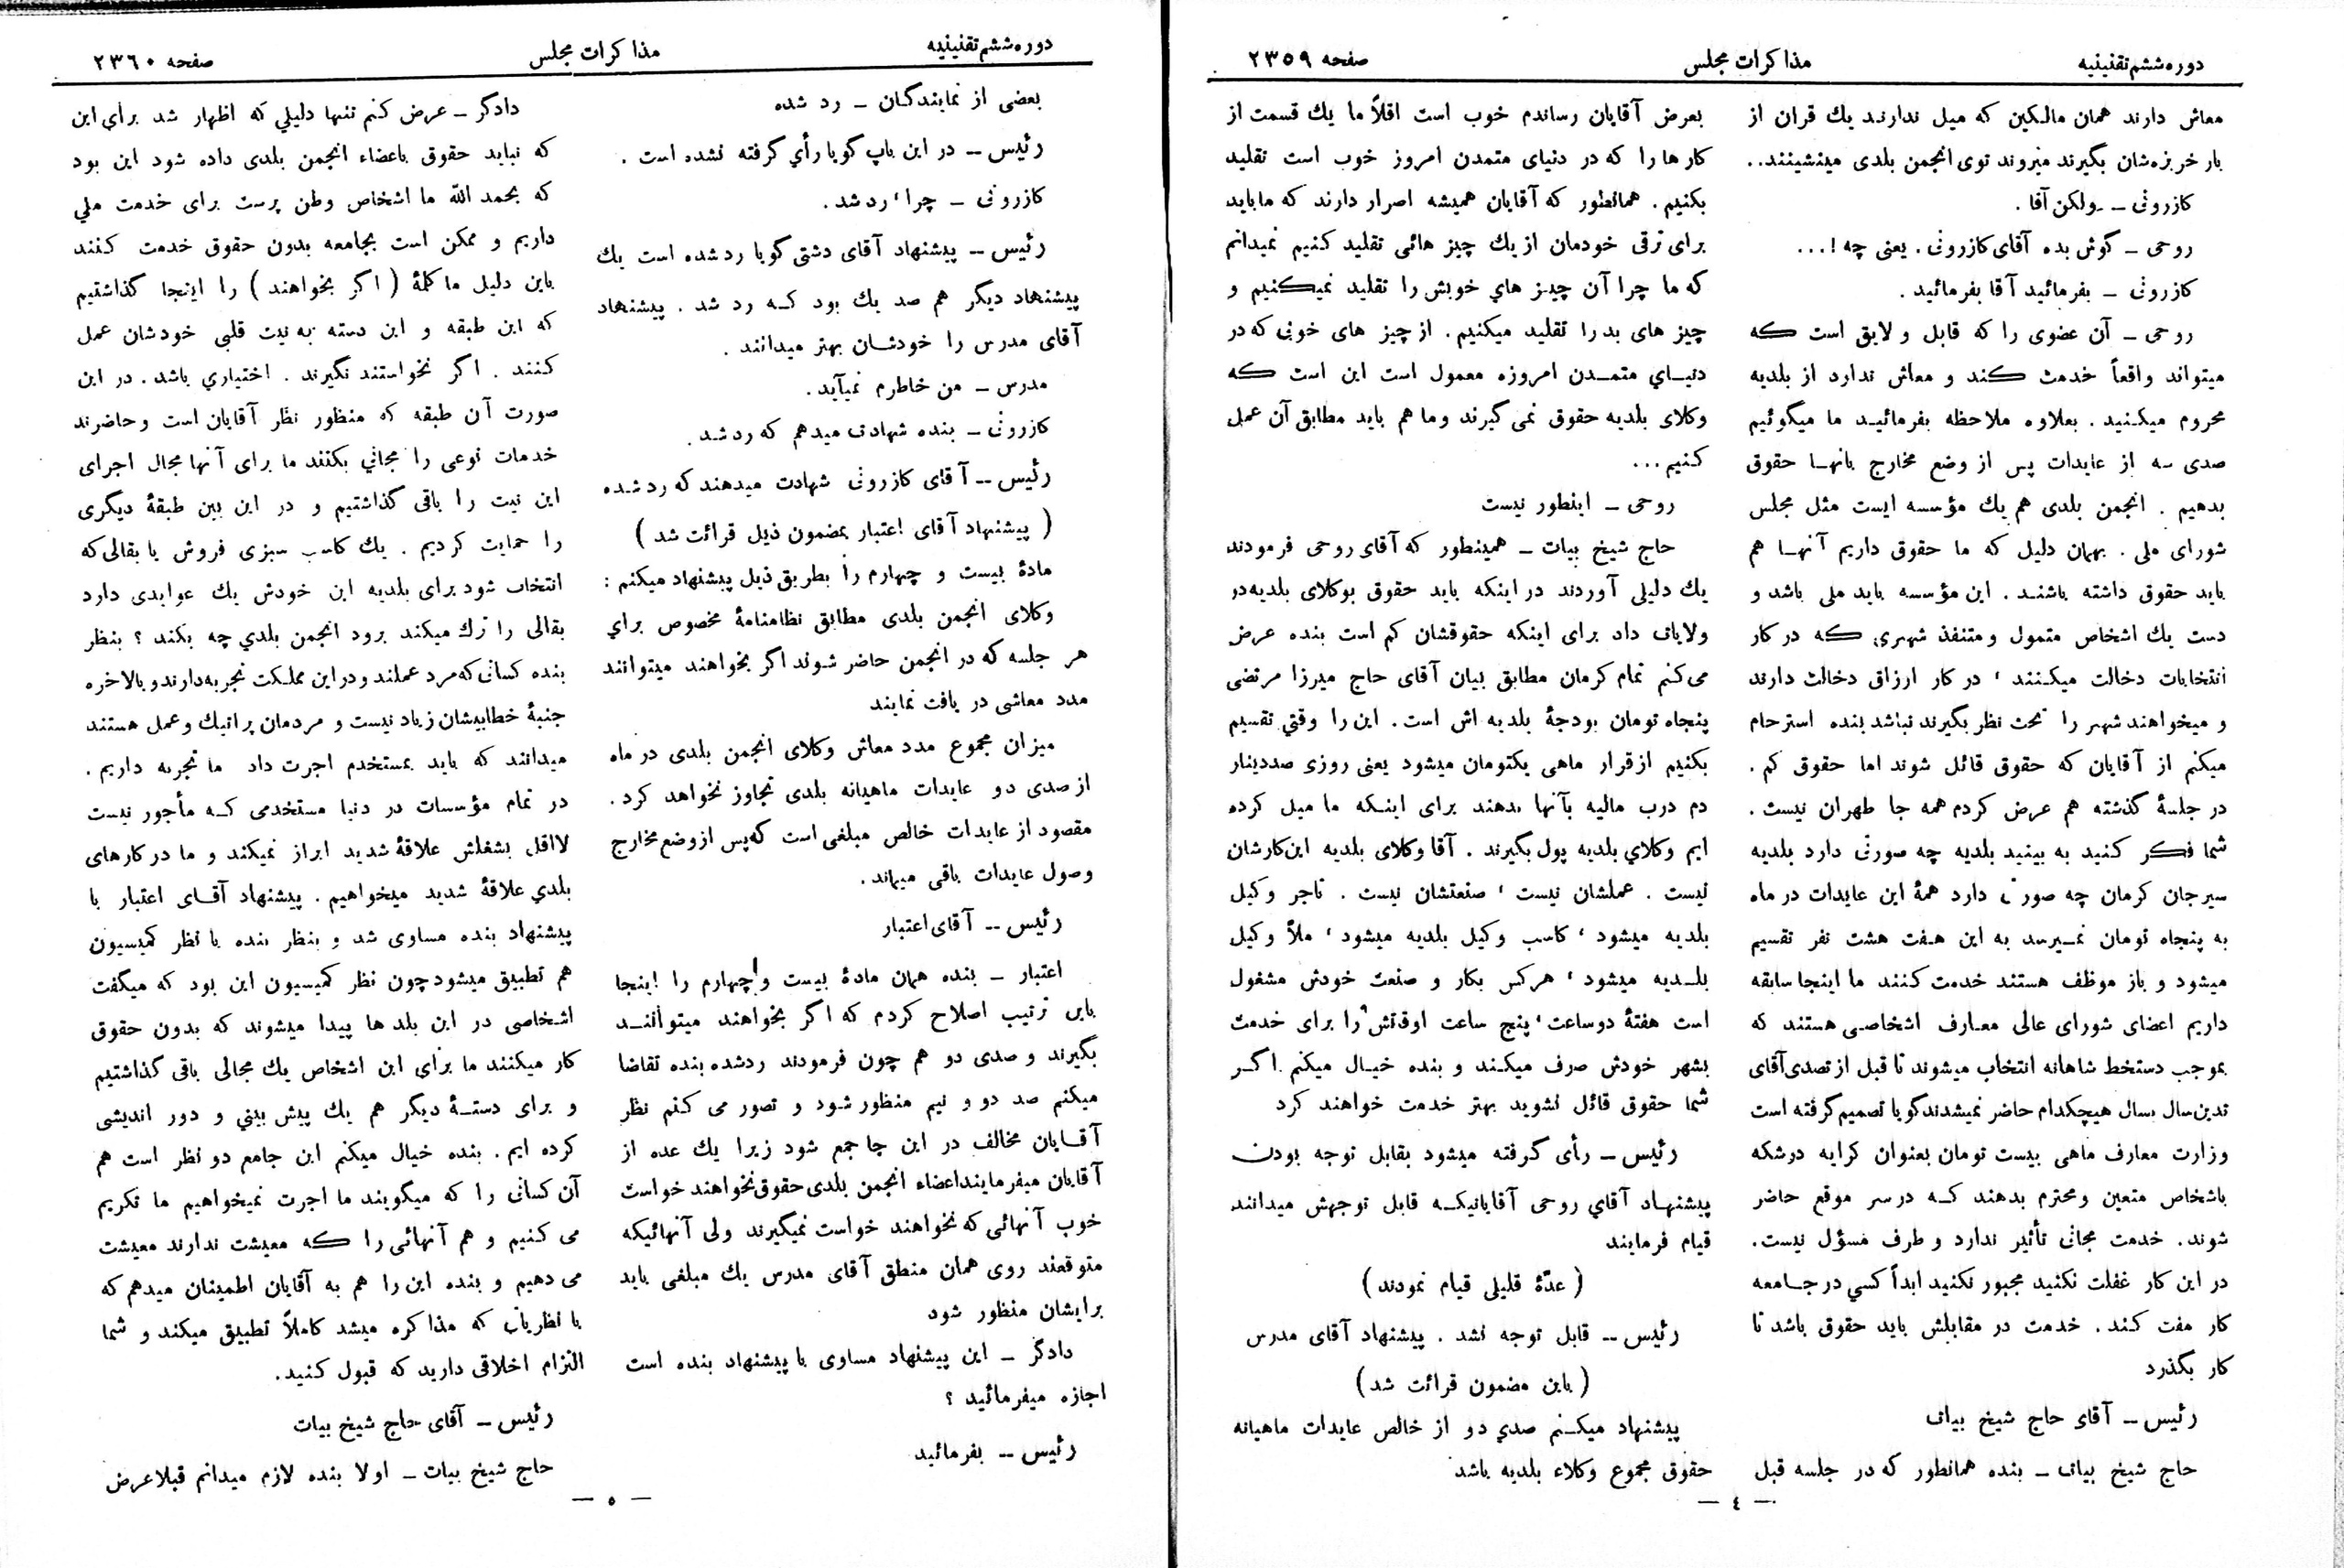 دوره ششم تقنینیه
مذاکرات مجلس
صفحه ۲۳۵۹
معاش دارند همان مالکین که میل ندارند یك قران از
بار خربزه‌شان بگیرند میروند توی انجمن بلدی مینشینند..
کازرونی ــ ولکن آقا .
روحی ــ گوش بده آقای کازرونی . یعنی چه !...
کازرونی ــ بفرمائید آقا بفرمائید .
روحی ــ آن عضوی را که قابل و لایق است که
میتواند واقعاً خدمت کند و معاش ندارد از بلدیه
محروم میکنید . بعلاوه ملاحظه بفرمائید ما میگوئیم
صدی سه از عایدات پس از وضع مخارج بآنها حقوق
بدهیم . انجمن بلدی هم یك مؤسسه ایست مثل مجلس
شورای ملی . بهمان دلیل که ما حقوق داریم آنها هم
باید حقوق داشته باشند . این مؤسسه باید ملی باشد و
دست یك اشخاص متمول و متنفذ شهری که در کار
انتخابات دخالت میکنند ، در کار ارزاق دخالت دارند
و میخواهند شهر را تحت نظر بگیرند نباشد بنده استرحام
میکنم از آقایان که حقوق قائل شوند اما حقوق کم .
در جلسهٔ گذشته هم عرض کردم همه جا طهران نیست .
شما فکر کنید به بینید بلدیه چه صورتی دارد بلدیه
سیرجان کرمان چه صورتی دارد همهٔ این عایدات در ماه
به پنجاه تومان نمیرسد به این هفت هشت نفر تقسیم
میشود و باز موظف هستند خدمت کنند ما اینجا سابقه
داریم اعضای شورای عالی معارف اشخاصی هستند که
بموجب دستخط شاهانه انتخاب میشوند تا قبل از تصدی آقای
تدین سال بسال هیچکدام حاضر نمیشدند گویا تصمیم گرفته است
وزارت معارف ماهی بیست تومان بعنوان کرایه درشکه
باشخاص متعین و محترم بدهند که در سر موقع حاضر
شوند . خدمت مجانی تأثیر ندارد و طرف مسؤل نیست .
در این کار غفلت نکنید مجبور نکنید ابداً کسي در جامعه
کار مفت کند . خدمت در مقابلش باید حقوق باشد تا
کار بگذرد
رئیس ــ آقای حاج شیخ بیات
حاج شیخ بیات ــ بنده همانطور که در جلسه قبل
بعرض آقایان رساندم خوب است اقلاً ما یك قسمت از
کارها را که در دنیای متمدن امروز خوب است تقلید
بکنیم . همانطور که آقایان همیشه اصرار دارند که ما باید
برای ترقی خودمان از یك چیز هائی تقلید کنیم نمیدانم
که ما چرا آن چیز هاي خوبش را تقلید نمیکنیم و
چیز های بد را تقلید میکنیم . از چیز های خوبی که در
دنیاي متمدن امروزه معمول است این است که
وکلای بلدیه حقوق نمی گیرند و ما هم باید مطابق آن عمل
کنیم...
روحی ــ اینطور نیست
حاج شیخ بیات ــ همینطور که آقای روحی فرمودند
یك دلیلی آوردند در اینکه باید حقوق بوکلای بلدیه در
ولایات داد برای اینکه حقوقشان کم است بنده عرض
می‌کنم تمام کرمان مطابق بیان آقای حاج میرزا مرتضی
پنجاه تومان بودجهٔ بلدیه اش است . این را وقتي تقسیم
بکنیم از قرار ماهی یکتومان میشود یعنی روزی صد دینار
دم درب مالیه بآنها بدهند برای اینکه ما میل کرده
ایم وکلاي بلدیه پول بگیرند . آقا وکلای بلدیه این کارشان
نیست . عملشان نیست ، صنعتشان نیست . تاجر وکیل
بلدیه میشود ، کاسب وکیل بلدیه میشود ، ملاّ وکیل
بلدیه میشود ، هرکس بکار و صنعت خودش مشغول
است هفتهٔ دو ساعت ، پنج ساعت اوقاتش را برای خدمت
بشهر خودش صرف میکند و بنده خیال میکنم اگر
شما حقوق قائل نشوید بهتر خدمت خواهند کرد
رئیس ــ رأی گرفته میشود بقابل توجه بودن
پیشنهاد آقاي روحی آقایانیکه قابل توجهش میدانند
قیام فرمایند
( عدّهٔ قلیلی قیام نمودند )
رئیس ــ قابل توجه نشد . پیشنهاد آقای مدرس
( باین مضمون قرائت شد )
پیشنهاد میکنم صدي دو از خالص عایدات ماهیانه
حقوق مجموع وکلاء بلدیه باشد
— ٤ —
دوره ششم تقنینیه
مذاکرات مجلس
صفحه ۲۳٦۰
بعضی از نمایندگان ــ رد شده
رئیس ــ در این باب گویا رأي گرفته نشده است .
کازرونی ــ چرا ، رد شد .
رئیس ــ پیشنهاد آقای دشتی گویا رد شده است یك
پیشنهاد دیگر هم صد یك بود که رد شد . پیشنهاد
آقای مدرس را خودشان بهتر میدانند .
مدرس ــ من خاطرم نمیآید .
کازرونی ــ بنده شهادت میدهم که رد شد .
رئیس ــ آقای کازرونی شهادت میدهند که رد شده
( پیشنهاد آقای اعتبار بمضمون ذیل قرائت شد )
مادهٔ بیست و چهارم را بطریق ذیل پیشنهاد میکنم :
وکلای انجمن بلدی مطابق نظامنامهٔ مخصوص براي
هر جلسه که در انجمن حاضر شوند اگر بخواهند میتوانند
مدد معاشی دریافت نمایند
میزان مجموع مدد معاش وکلای انجمن بلدی در ماه
از صدی دو عایدات ماهیانه بلدی تجاوز نخواهد کرد .
مقصود از عایدات خالص مبلغی است که پس از وضع مخارج
وصول عایدات باقی میماند .
رئیس ــ آقای اعتبار
اعتبار ــ بنده همان مادهٔ بیست و چهارم را اینجا
باین ترتیب اصلاح کردم که اگر بخواهند میتوانند
بگیرند و صدی دو هم چون فرمودند رد شده بنده تقاضا
میکنم صد دو و نیم منظور شود و تصور می کنم نظر
آقایان مخالف در این جا جمع شود زیرا یك عده از
آقایان میفرمایند اعضاء انجمن بلدی حقوق نخواهند خواست
خوب آنهائی که نخواهند خواست نمیگیرند ولی آنهائیکه
متوقعند روی همان منطق آقای مدرس یك مبلغی باید
برایشان منظور شود
دادگر ــ این پیشنهاد مساوی با پیشنهاد بنده است
اجازه میفرمائید ؟
رئیس ــ بفرمائید
دادگر ــ عرض کنم تنها دلیلي که اظهار شد برای این
که نباید حقوق باعضاء انجمن بلدی داده شود این بود
که بحمد الله ما اشخاص وطن پرست برای خدمت ملي
داریم و ممکن است بجامعه بدون حقوق خدمت کنند
باین دلیل ما کلمهٔ ( اگر بخواهند ) را اینجا گذاشتیم
که این طبقه و این دسته به نیت قلبی خودشان عمل
کنند . اگر نخواستند نگیرند . اختیاري باشد . در این
صورت آن طبقه که منظور نظر آقایان است و حاضرند
خدمات نوعی را مجاني بکنند ما برای آنها مجال اجرای
این نیت را باقی گذاشتیم و در این بین طبقهٔ دیگری
را حمایت کردیم . یك کاسب سبزی فروش یا بقالی که
انتخاب شود برای بلدیه این خودش یك عوایدی دارد
بقالی را ترك میکند برود انجمن بلدي چه بکند ؟ بنظر
بنده کسانی که مرد عملند و در این مملکت تجربه دارند و بالاخره
جنبهٔ خطابیشان زیاد نیست و مردمان پراتیك و عمل هستند
میدانند که باید بمستخدم اجرت داد ما تجربه داریم .
در تمام مؤسسات در دنیا مستخدمی که مأجور نیست
لااقل بشغلش علاقهٔ شدید ابراز نمیکند و ما در کارهای
بلدي علاقهٔ شدید میخواهیم . پیشنهاد آقای اعتبار با
پیشنهاد بنده مساوی شد و بنظر بنده با نظر کمیسیون
هم تطبیق میشود چون نظر کمیسیون این بود که میگفت
اشخاصی در این بلد ها پیدا میشوند که بدون حقوق
کار میکنند ما برای این اشخاص یك مجالی باقی گذاشتیم
و برای دستهٔ دیگر هم یك پیش بیني و دور اندیشی
کرده ایم . بنده خیال میکنم این جامع دو نظر است هم
آن کسانی را که میگویند ما اجرت نمیخواهیم ما تکریم
می کنیم و هم آنهائی را که معیشت ندارند معیشت
می دهیم و بنده این را هم به آقایان اطمینان میدهم که
با نظریاتی که مذاکره میشد کاملاً تطبیق میکند و شما
التزام اخلاقی دارید که قبول کنید .
رئیس ــ آقای حاج شیخ بیات
حاج شیخ بیات ــ اولا بنده لازم میدانم قبلا عرض
— ٥ —